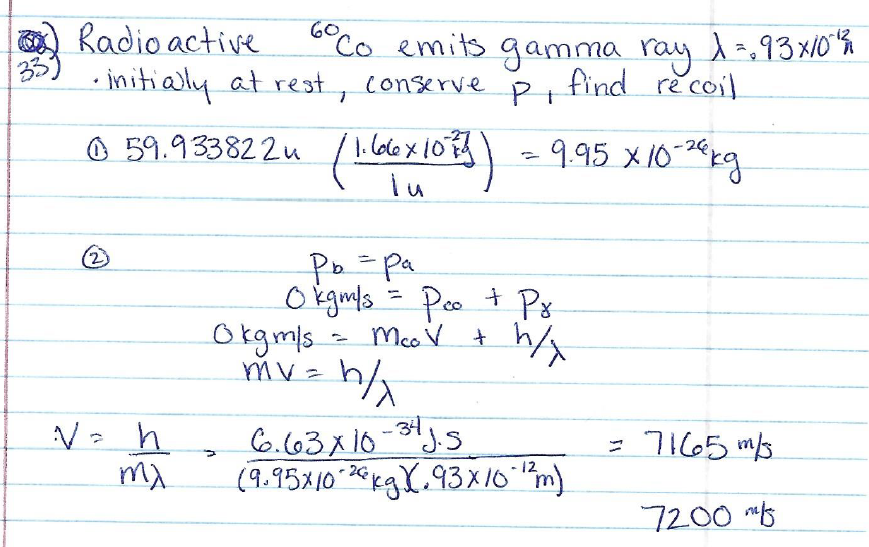 33) Radioactive ⁶⁰Co emits gamma ray λ = .93 x10⁻¹² m
· initially at rest, conserve p, find recoil
① 59.933822u (1.66 x 10⁻²⁷ kg / 1u) = 9.95 x 10⁻²⁶ kg
②
Pb = Pa
0 kgm/s = Pco + Pγ
0 kgm/s = mco V + h/λ
mv = h/λ
V = h/mλ = 6.63 x 10⁻³⁴ J·s / (9.95x10⁻²⁶ kg)(.93x10⁻¹² m) = 7165 m/s
7200 m/s